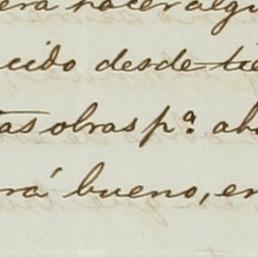 era hacer algu
cido desde tie
tas obras pª. aho
rá bueno, en